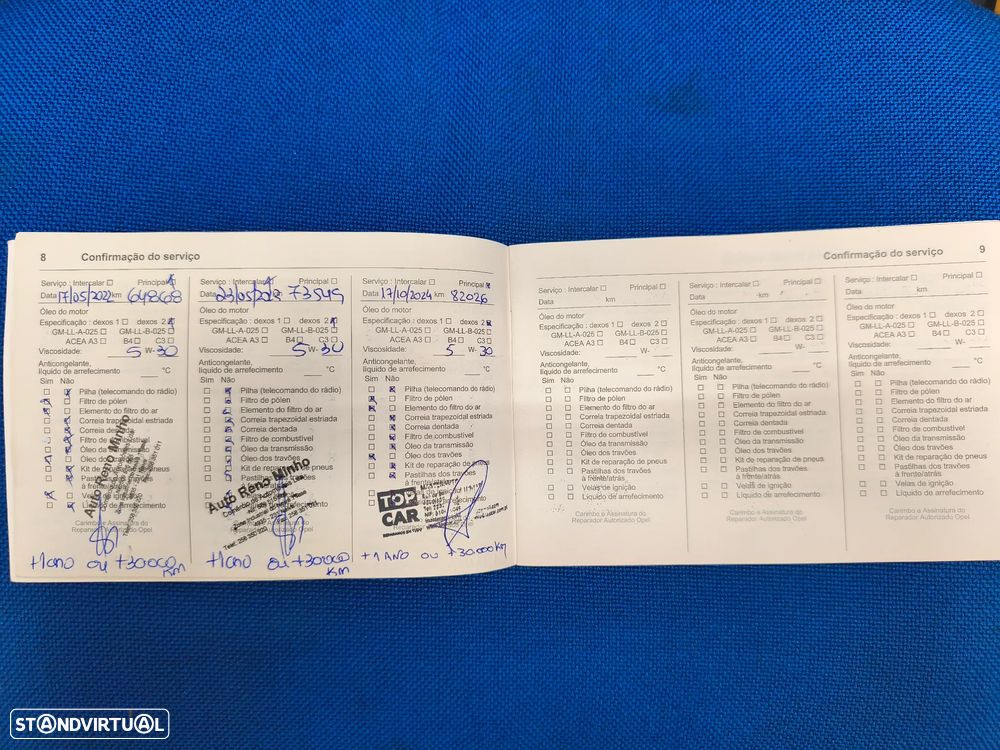 8 Confirmação do serviço
Serviço : Intercalar Principal
Data 17/05/2022 km 64868
Óleo do motor
Especificação : dexos 1 dexos 2
GM-LL-A-025 GM-LL-B-025
ACEA A3 B4 C3
Viscosidade: 5 W- 30
Anticongelante,
líquido de arrefecimento °C
Sim Não
Pilha (telecomando do rádio)
Filtro de pólen
Elemento do filtro do ar
Correia trapezoidal estriada
Correia dentada
Filtro de combustível
Óleo da transmissão
Óleo dos travões
Kit de reparação de pneus
Auto Reno Minho
+1 ano ou +30000 km
Serviço : Intercalar Principal
Data km 73549
Óleo do motor
Especificação : dexos 1 dexos 2
GM-LL-A-025 GM-LL-B-025
ACEA A3 B4 C3
Viscosidade: 5 W- 30
Anticongelante,
líquido de arrefecimento °C
Sim Não
Pilha (telecomando do rádio)
Filtro de pólen
Elemento do filtro do ar
Correia trapezoidal estriada
Correia dentada
Filtro de combustível
Óleo da transmissão
Óleo dos travões
Kit de reparação de pneus
Auto Reno Minho
+1 ano ou +30000 km
Serviço : Intercalar Principal
Data 17/10/2024 km 82026
Óleo do motor
Especificação : dexos 1 dexos 2
GM-LL-A-025 GM-LL-B-025
ACEA A3 B4 C3
Viscosidade: 5 W- 30
Anticongelante,
líquido de arrefecimento °C
Sim Não
Pilha (telecomando do rádio)
Filtro de pólen
Elemento do filtro do ar
Correia trapezoidal estriada
Correia dentada
Filtro de combustível
Óleo da transmissão
Óleo dos travões
Kit de reparação de pneus
Pastilhas dos travões
TOP CAR
+1 ANO ou +30.000 km
Confirmação do serviço 9
Serviço : Intercalar Principal
Data km
Óleo do motor
Especificação : dexos 1 dexos 2
GM-LL-A-025 GM-LL-B-025
ACEA A3 B4 C3
Viscosidade: W-
Anticongelante,
líquido de arrefecimento °C
Sim Não
Pilha (telecomando do rádio)
Filtro de pólen
Elemento do filtro do ar
Correia trapezoidal estriada
Correia dentada
Filtro de combustível
Óleo da transmissão
Óleo dos travões
Kit de reparação de pneus
Pastilhas dos travões
à frente/atrás
Velas de ignição
Líquido de arrefecimento
Carimbo e Assinatura do
Reparador Autorizado Opel
Serviço : Intercalar Principal
Data km
Óleo do motor
Especificação : dexos 1 dexos 2
GM-LL-A-025 GM-LL-B-025
ACEA A3 B4 C3
Viscosidade: W-
Anticongelante,
líquido de arrefecimento °C
Sim Não
Pilha (telecomando do rádio)
Filtro de pólen
Elemento do filtro do ar
Correia trapezoidal estriada
Correia dentada
Filtro de combustível
Óleo da transmissão
Óleo dos travões
Kit de reparação de pneus
Pastilhas dos travões
à frente/atrás
Velas de ignição
Líquido de arrefecimento
Carimbo e Assinatura do
Reparador Autorizado Opel
Serviço : Intercalar Principal
Data km
Óleo do motor
Especificação : dexos 1 dexos 2
GM-LL-A-025 GM-LL-B-025
ACEA A3 B4 C3
Viscosidade: W-
Anticongelante,
líquido de arrefecimento °C
Sim Não
Pilha (telecomando do rádio)
Filtro de pólen
Elemento do filtro do ar
Correia trapezoidal estriada
Correia dentada
Filtro de combustível
Óleo da transmissão
Óleo dos travões
Kit de reparação de pneus
Pastilhas dos travões
à frente/atrás
Velas de ignição
Líquido de arrefecimento
Carimbo e Assinatura do
Reparador Autorizado Opel
STANDVIRTUAL